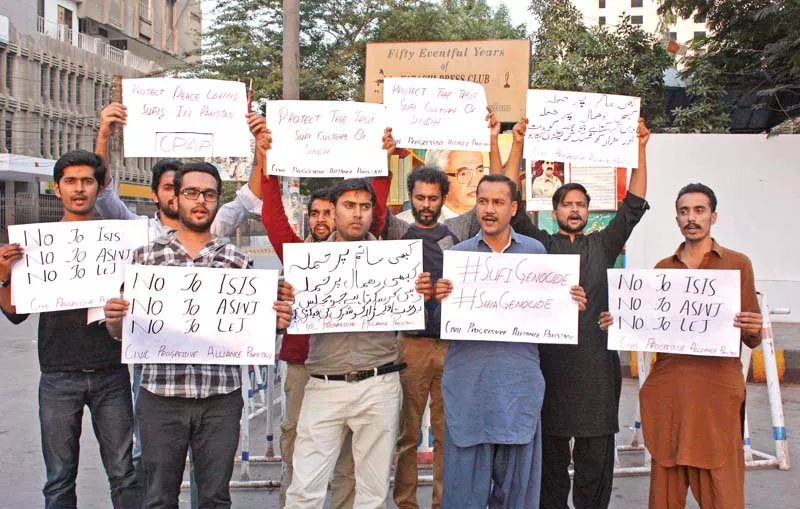 Fifty Eventful Years
of
PRESS CLUB
PROTECT PEACE LOVING
SUFIS IN PAKISTAN
CPAP
PROTECT THE TRUE
SUFI CULTURE OF
SINDH
CIVIL PROGRESSIVE ALLIANCE PAKISTAN
PROTECT THE TRUE
SUFI CULTURE OF
SINDH
CIVIL PROGRESSIVE ALLIANCE
کبھی ماتم پر حملہ
کبھی دھمال پر حملہ
CIVIL PROGRESSIVE ALLIANCE
NO TO ISIS
NO TO ASWJ
NO TO LEJ
CIVIL PROGRESSIVE ALLIANCE
NO TO ISIS
NO TO ASWJ
NO TO LEJ
CIVIL PROGRESSIVE ALLIANCE PAKISTAN
کبھی ماتم پر حملہ
کبھی دھمال پر حملہ
CIVIL PROGRESSIVE ALLIANCE PAKISTAN
#SUFIGENOCIDE
#SHIAGENOCIDE
CIVIL PROGRESSIVE ALLIANCE PAKISTAN
NO TO ISIS
NO TO ASWJ
NO TO LEJ
CIVIL PROGRESSIVE ALLIANCE PAKISTAN